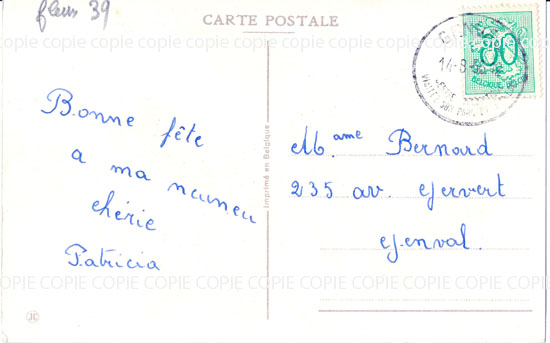 fleurs 39
CARTE POSTALE
Bonne fête
a ma
chérie
Patricia
Imprimé en Belgique
Mame Bernard
235 av. Gevert
Genval.
14-8
80
BELGIQUE
JC
COPIE COPIE COPIE COPIE COPIE COPIE COPIE COPIE COPIE COPIE COPIE
COPIE COPIE COPIE COPIE COPIE COPIE COPIE COPIE COPIE COPIE COPIE